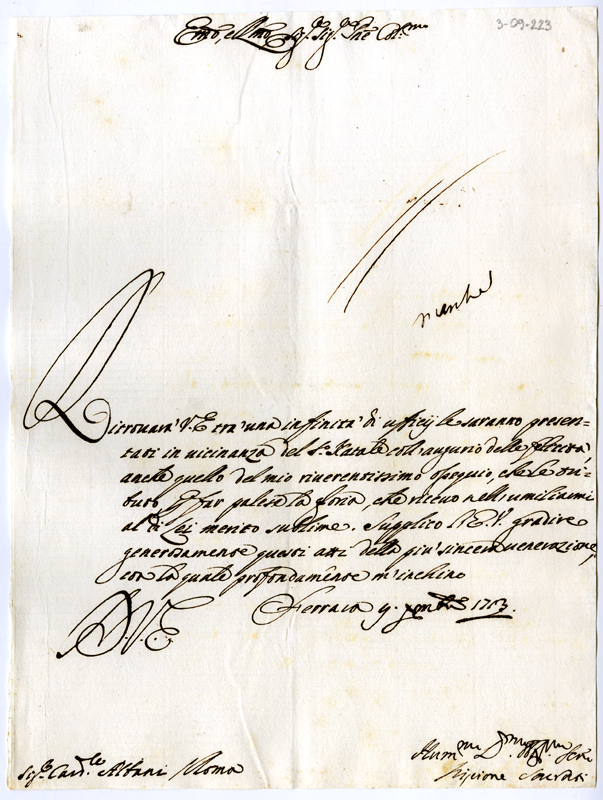 3-09-223
Emo, e Rmo Sig.r Sig.r Pne Col.mo
Ritrouarà V.E trà una infinità di ufficij le saranno presen-
tati in vicinanza del S.o Natale coll'augurio delle felicità,
anche quello del mio riuerentissimo ossequio, che le tri-
buto p far palese la gloria, che riceuo nell'umiliarmi
al di Lei merito sublime. Supplico l'E.V. gradire
generosamente questi atti della più sincera uenerazione,
con la quale profondam̃ente m'inchino
D.V.E. Ferrara 9. Xmbre 1713.
Sig.r Card.le Albani Roma
Hum.mo Seru.
Scipione Sacrati